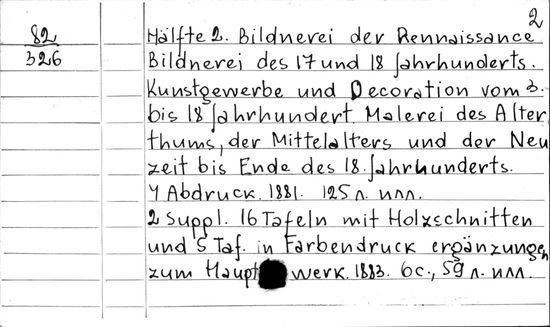 2
82
326
Hälfte 2. Bildnerei der Rennaissance
Bildnerei des 17 und 18 Jahrhunderts.
Kunstgewerbe und Decoration vom 3.
bis 18 Jahrhundert. Malerei des Alter
thums, der Mittelalters und der Neu
zeit bis Ende des 18. Jahrhunderts.
4 Abdruck. 1881. 125 л. илл.
2 Suppl. 16 Tafeln mit Holzschnitten
und 5 Taf. in Farbendruck ergänzungen
zum Haupt werk. 1883. 6 с., 59 л. илл.